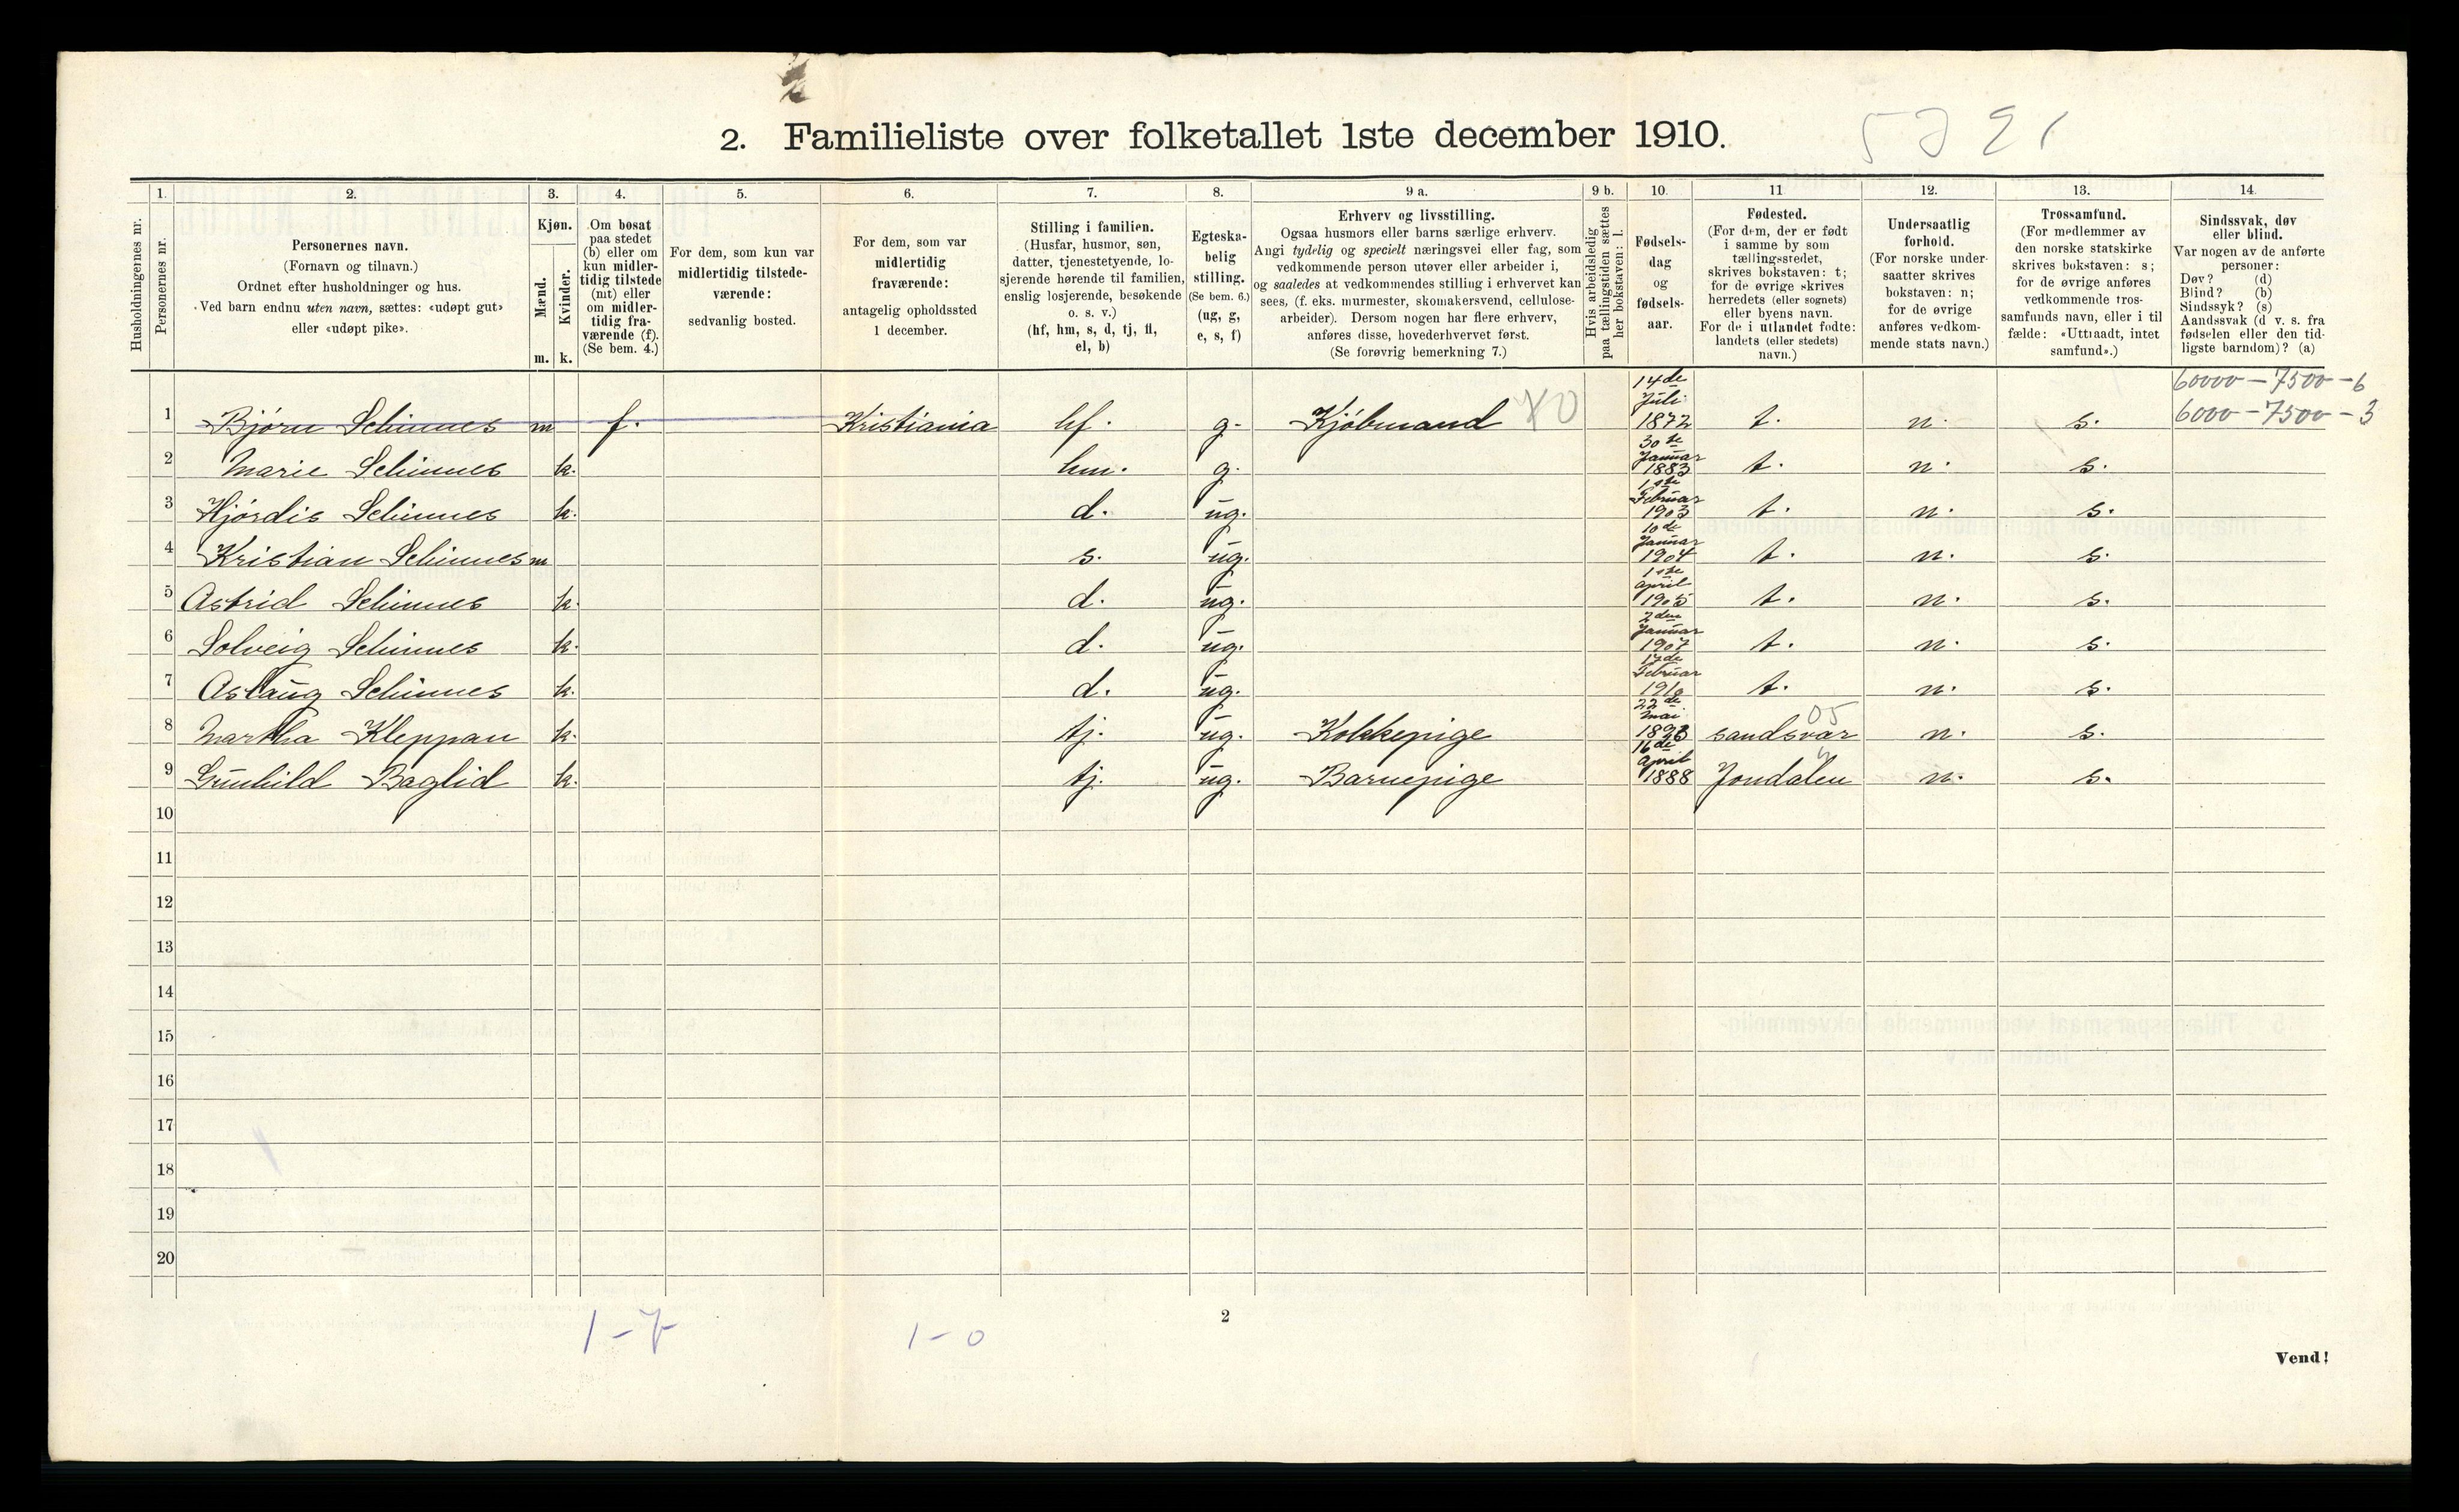 2. Familieliste over folketallet 1ste december 1910.
1. 2. 3. 4. 5. 6. 7. 8. 9 a. 9 b. 10. 11 12. 13. 14.
Husholdningernes nr.
Personernes nr.
Personernes navn.
(Fornavn og tilnavn.)
Ordnet efter husholdninger og hus.
Ved barn endnu uten navn, sættes: «udøpt gut»
eller «udøpt pike».
Kjøn.
Mænd.
Kvinder.
m. k.
Om bosat
paa stedet
(b) eller om
kun midler-
tidig tilstede
(mt) eller
om midler-
tidig fra-
værende (f).
(Se bem. 4.)
For dem, som kun var
midlertidig tilstede-
værende:
sedvanlig bosted.
For dem, som var
midlertidig
fraværende:
antagelig opholdssted
1 december.
Stilling i familien.
(Husfar, husmor, søn,
datter, tjenestetyende, lo-
sjerende hørende til familien,
enslig losjerende, besøkende
o. s. v.)
(hf, hm, s, d, tj, fl,
el, b)
Egteska-
belig
stilling.
(Se bem. 6.)
(ug, g,
e, s, f)
Erhverv og livsstilling.
Ogsaa husmors eller barns særlige erhverv.
Angi tydelig og specielt næringsvei eller fag, som
vedkommende person utøver eller arbeider i,
og saaledes at vedkommendes stilling i erhvervet kan
sees, (f. eks. murmester, skomakersvend, cellulose-
arbeider). Dersom nogen har flere erhverv,
anføres disse, hovederhvervet først.
(Se forøvrig bemerkning 7.)
Hvis arbeidsledig
paa tællingstiden sættes
her bokstaven: l.
Fødsels-
dag
og
fødsels-
aar.
Fødested.
(For dem, der er født
i samme by som
tællingsstedet,
skrives bokstaven: t;
for de øvrige skrives
herredets (eller sognets)
eller byens navn.
For de i utlandet fødte:
landets (eller stedets)
navn.)
Undersaatlig
forhold.
(For norske under-
saatter skrives
bokstaven: n;
for de øvrige
anføres vedkom-
mende stats navn.)
Trossamfund.
(For medlemmer av
den norske statskirke
skrives bokstaven: s;
for de øvrige anføres
vedkommende tros-
samfunds navn, eller i til
fælde: «Uttraadt, intet
samfund».)
Sindssvak, døv
eller blind.
Var nogen av de anførte
personer:
Døv? (d)
Blind? (b)
Sindssyk? (s)
Aandssvak (d v. s. fra
fødselen eller den tid-
ligste barndom)? (a)
60000 - 7500 - 6
1 Bjørn Schinnes m f. Kristiania hf. g. Kjøbmand 14de Juli 1872 t. n. s. 6000 - 7500 - 3
2 Marie Schinnes k. hm. g. 30te Januar 1883 t. n. s.
3 Hjørdis Schinnes k. d. ug. 1ste Februar 1903 t. n. s.
4 Kristian Schinnes m s. ug. 10de Januar 1904 t. n. s.
5 Astrid Schinnes k. d. ug. 1ste april 1905 t. n. s.
6 Solveig Schinnes k. d. ug. 2den Januar 1907 t. n. s.
7 Aslaug Schinnes k. d. ug. 17de Februar 1910 t. n. s.
8 Martha Kleppan k. tj. ug. Kokkepige 22de mai sandsvær n. s.
9 Gunhild Baglid k. tj. ug. Barnepige 16de april 1888 Jondalen n. s.
10
11
12
13
14
15
16
17
18
19
20
1-7 1-0
2
Vend!